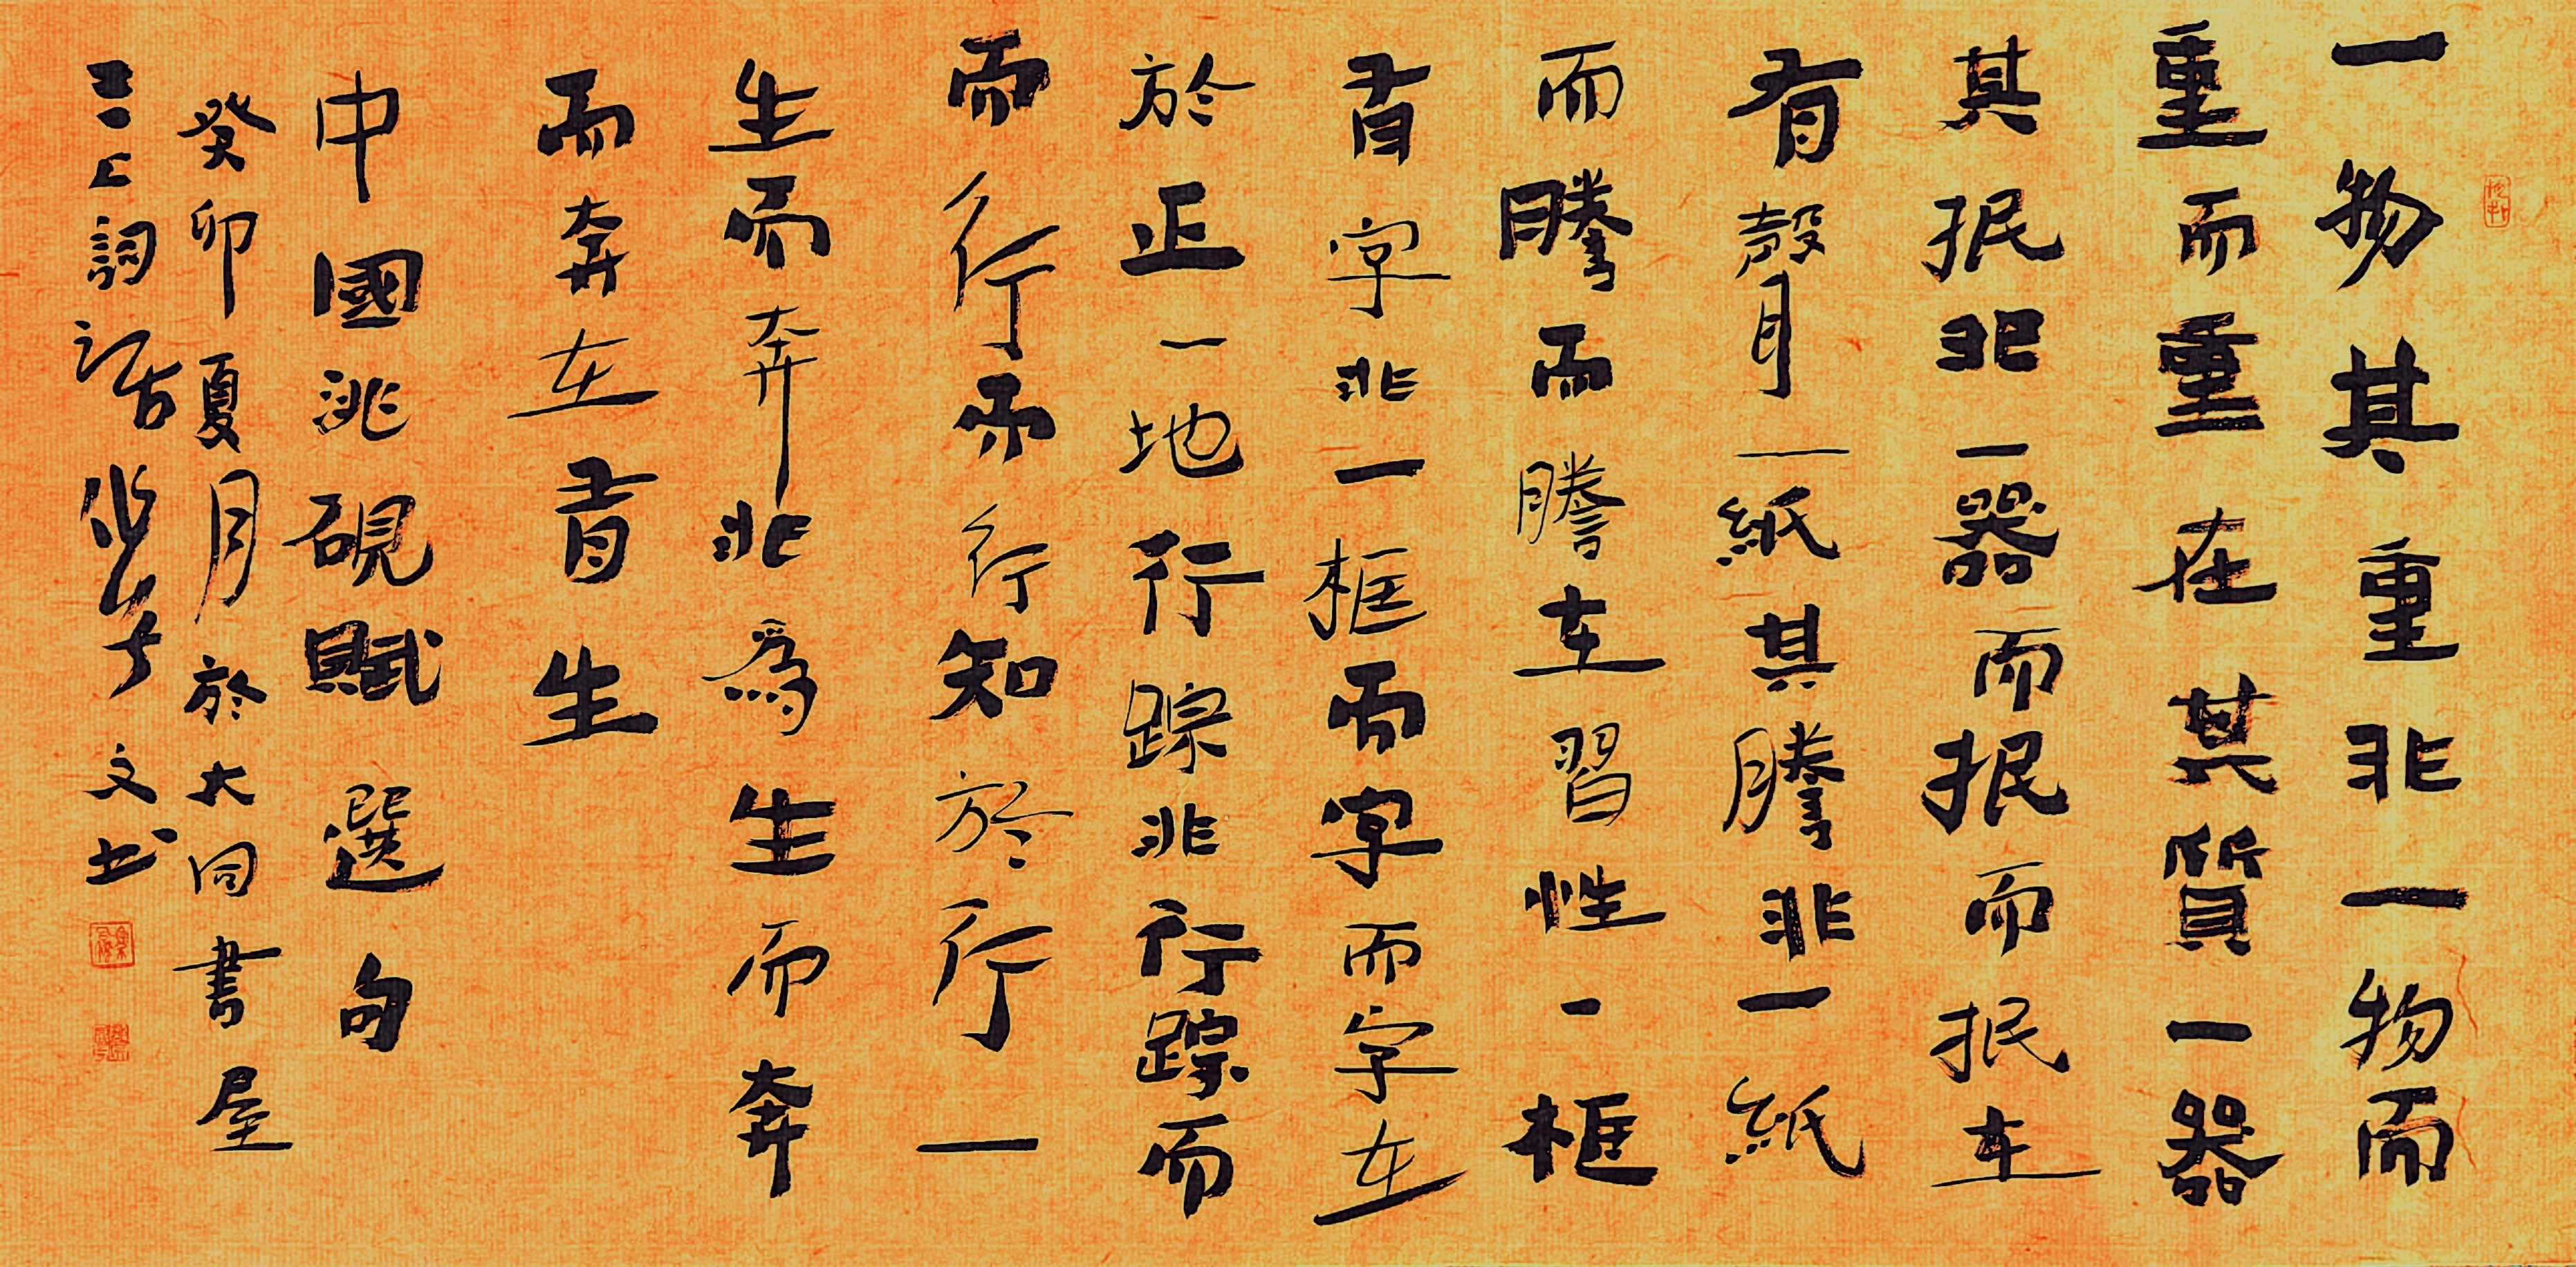 一物其重非一物而
重而重在其質一器
其抿非一器而抿而抿在
有殼一紙其謄非一紙
而謄而謄在習性一框
有字非一框而字而字在
於正一地行踪非行踪而
而行而行知於行一
生而奔非為生而奔
而奔在有生
中國洮硯賦選句
癸卯夏月於大同書屋
詞話 文書